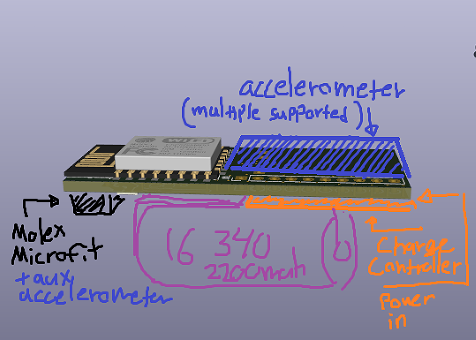 accelerometer
(multiple supported)
Molex
Microfit
+ aux
accelerometer
16 340
2200mah
Charge
Controller
Power
in